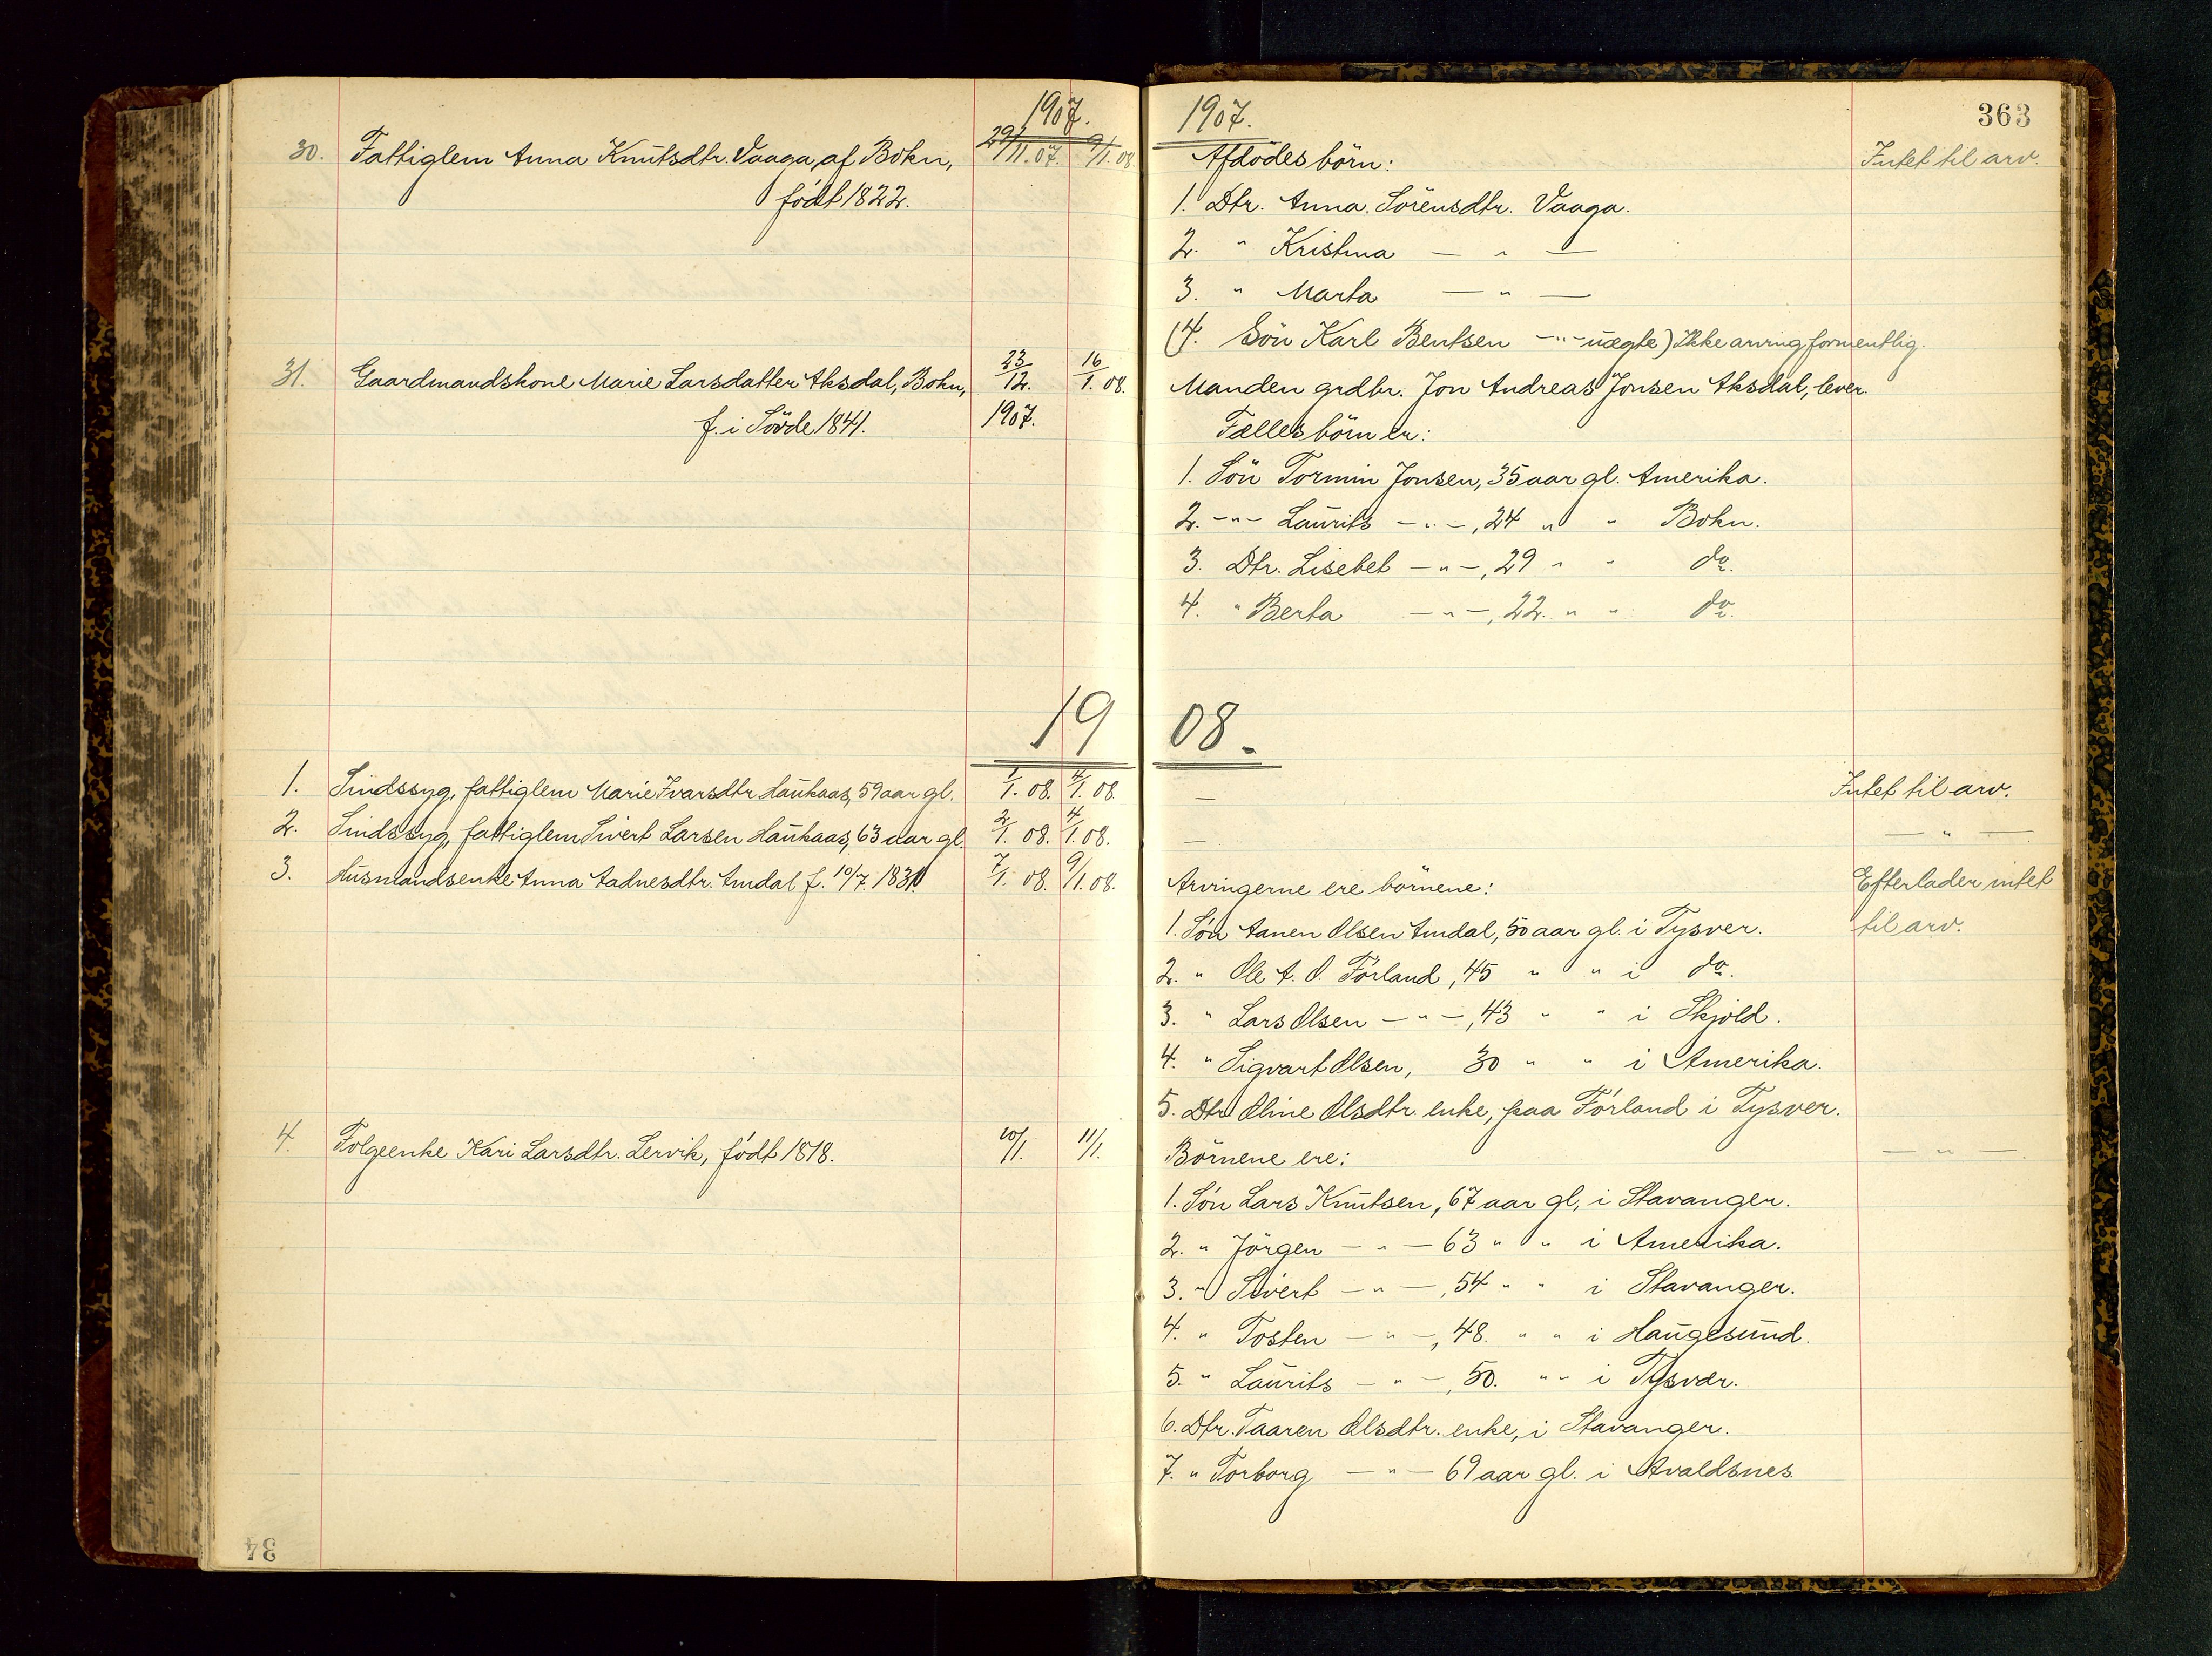 1907.
30. Fattiglem Anna Knutsdtr. Vaaga, af Bokn, 29/11. 07. 9/1. 08.
født 1822.
31. Gaardmandskone Marie Larsdatter Aksdal, Bokn, 23/12. 16/1. 08.
f. i Sövde 1841. 1907.
19
1. Sindssyg, fattiglem Marie Ivarsdtr Haukaas, 59 aar gl. 1/1. 08. 4/1. 08.
2. Sindssyg, fattiglem Sivert Larsen Haukaas, 63 aar gl. 2/1. 08. 4/1. 08.
3. Husmandsenke Anna Aadnesdtr. Amdal f. 10/7. 1831. 7/1. 08. 9/1. 08.
4. Folgeenke Kari Larsdtr. Lervik, født 1818. 10/1. 11/1.
34
1907. 363
Afdödes börn: Intet til arv.
1. Dtr. Anna Sörensdtr. Vaaga.
2. " Kristina — " —
3. " Marta — " —
(4. Sön Karl Bentsen — " — uægte) Ikke arving formentlig.
Manden grdbr. Jon Andreas Jonsen Aksdal, lever.
Fælles börn er:
1. Sön Tormin Jonsen, 35 aar gl. Amerika.
2. — " — Laurits — " —, 24 " " Bokn.
3. Dtr. Lisebet — " —, 29 " " do.
4. " Berta — " —, 22. " " do.
08.
— Intet til arv.
— — " —
Arvingerne ere börnene: Efterlader intet
1. Sön Aanen Olsen Amdal, 50 aar gl. i Tysver. til arv.
2. " Ole A. O. Förland, 45 " " i do.
3. " Lars Olsen — " —, 43 " " i Skjold.
4. " Sigvart Olsen, 30 " " i Amerika.
5. Dtr Oline Olsdtr. enke, paa Förland i Tysver.
Börnene ere: — " —.
1. Sön Lars Knutsen, 67 aar gl, i Stavanger.
2. " Jörgen — " — 63 " " i Amerika.
3. " Sivert — " —, 54 " " i Stavanger.
4. " Tosten — " —, 48. " " i Haugesund.
5. " Laurits — " —, 50. " " i Tysvær.
6. Dtr. Taaren Olsdtr. enke, i Stavanger.
7. " Torborg — " — 69 aar gl. i Avaldsnes